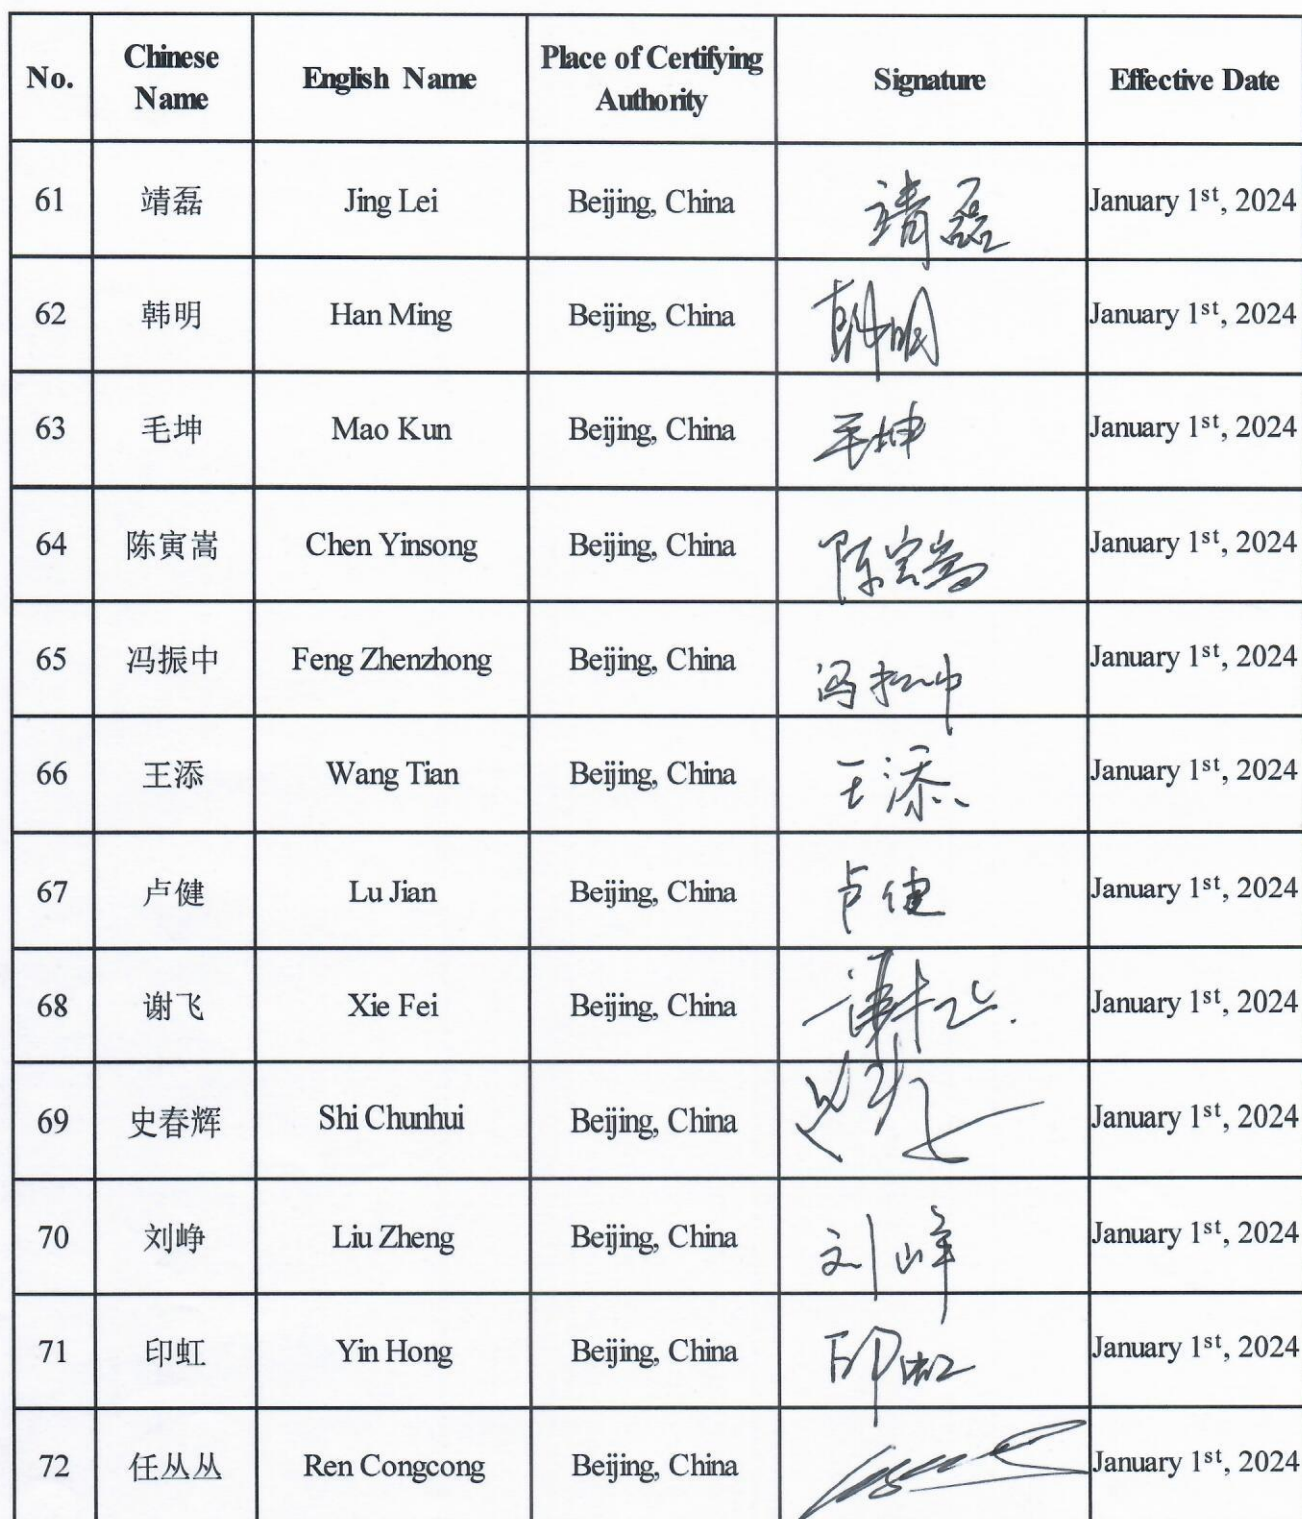 No.
Chinese
Name
English Name
Place of Certifying
Authority
Signature
Effective Date
61 靖磊 Jing Lei Beijing, China 靖磊 January 1st, 2024
62 韩明 Han Ming Beijing, China 韩明 January 1st, 2024
63 毛坤 Mao Kun Beijing, China 毛坤 January 1st, 2024
64 陈寅嵩 Chen Yinsong Beijing, China 陈寅嵩 January 1st, 2024
65 冯振中 Feng Zhenzhong Beijing, China 冯振中 January 1st, 2024
66 王添 Wang Tian Beijing, China 王添 January 1st, 2024
67 卢健 Lu Jian Beijing, China 卢健 January 1st, 2024
68 谢飞 Xie Fei Beijing, China 谢飞 January 1st, 2024
69 史春辉 Shi Chunhui Beijing, China January 1st, 2024
70 刘峥 Liu Zheng Beijing, China 刘峥 January 1st, 2024
71 印虹 Yin Hong Beijing, China 印虹 January 1st, 2024
72 任丛丛 Ren Congcong Beijing, China January 1st, 2024